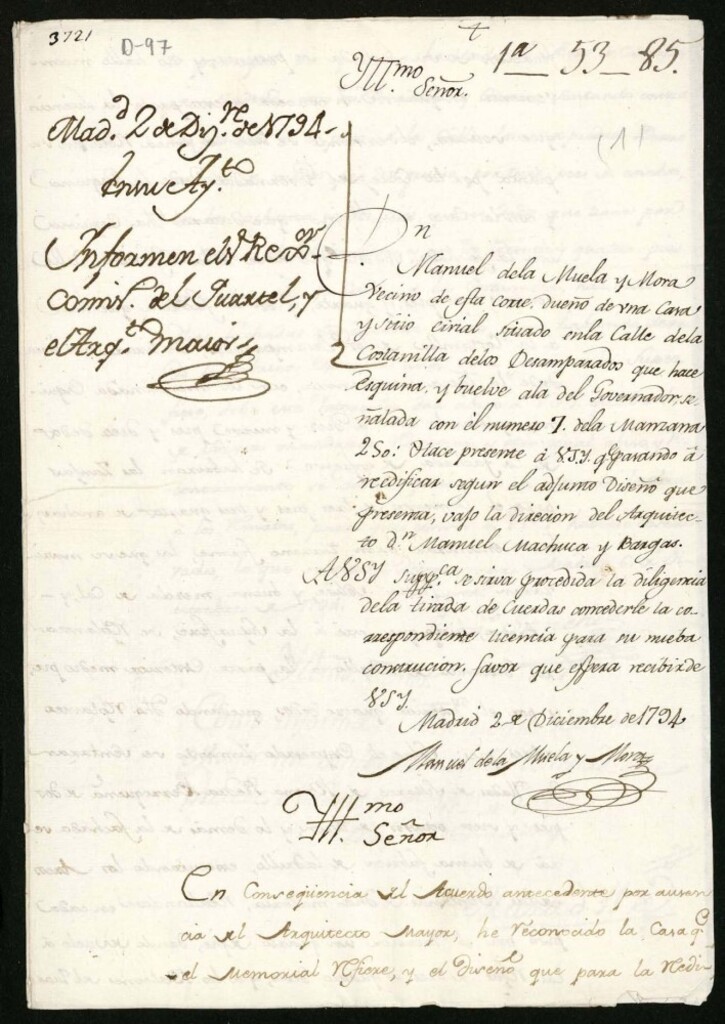 3721
D-97
+
1ª__53__85.
Yll.mo
Señor.
(1)
Mad.d 2 de Diz.re de 1794.
En su Ay.to
Informen el S.r Rexor
Comis. del Quartel, y
el Arq.to maior
Dn
Manuel dela Muela y Mora
Vecino de esta corte, dueño de vna Casa
y sitio cirial sitiado enla Calle dela
Costanilla delos Desamparados que hace
Esquina, y buelve ala del Governador, se-
ñalada con el numero 7. dela Manzana
250: Hace presente á VSY. q.e pasando á
reedificar segun el adjunto Diseño que
presenta, vajo la direcion del Arquitec-
to d.n Manuel Machuca y Bargas.
AVSY supp.ca se sirva procedida la diligencia
dela tirada de Cuerdas concederle la co-
rrespondiente licencia para su nueba
construcion. favor que espera recibir de
VSY.
Madrid 2 de Diciembre de 1794
Manuel dela Muela y Mora
Yll.mo
Señor
En Conseqüencia del Acuerdo antecedente por ausen
cia del Arquitecto Mayor, he reconocido la Casa q.e
el Memorial refiere, y el Diseño que para la Redi-